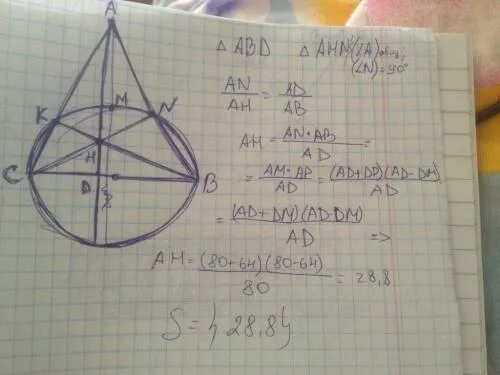 A
K
M
N
H
C
D
B
△ ABD △ AHN (∠A) общ,
(∠N) = 90°
AN/AH = AD/AB
AH = AN · AB / AD =
= AM · AP / AD = (AD+DP)(AD-DM) / AD
= (AD+DM)(AD-DM) / AD =>
AH = (80+64)(80-64) / 80 = 28,8
S = { 28,8 }